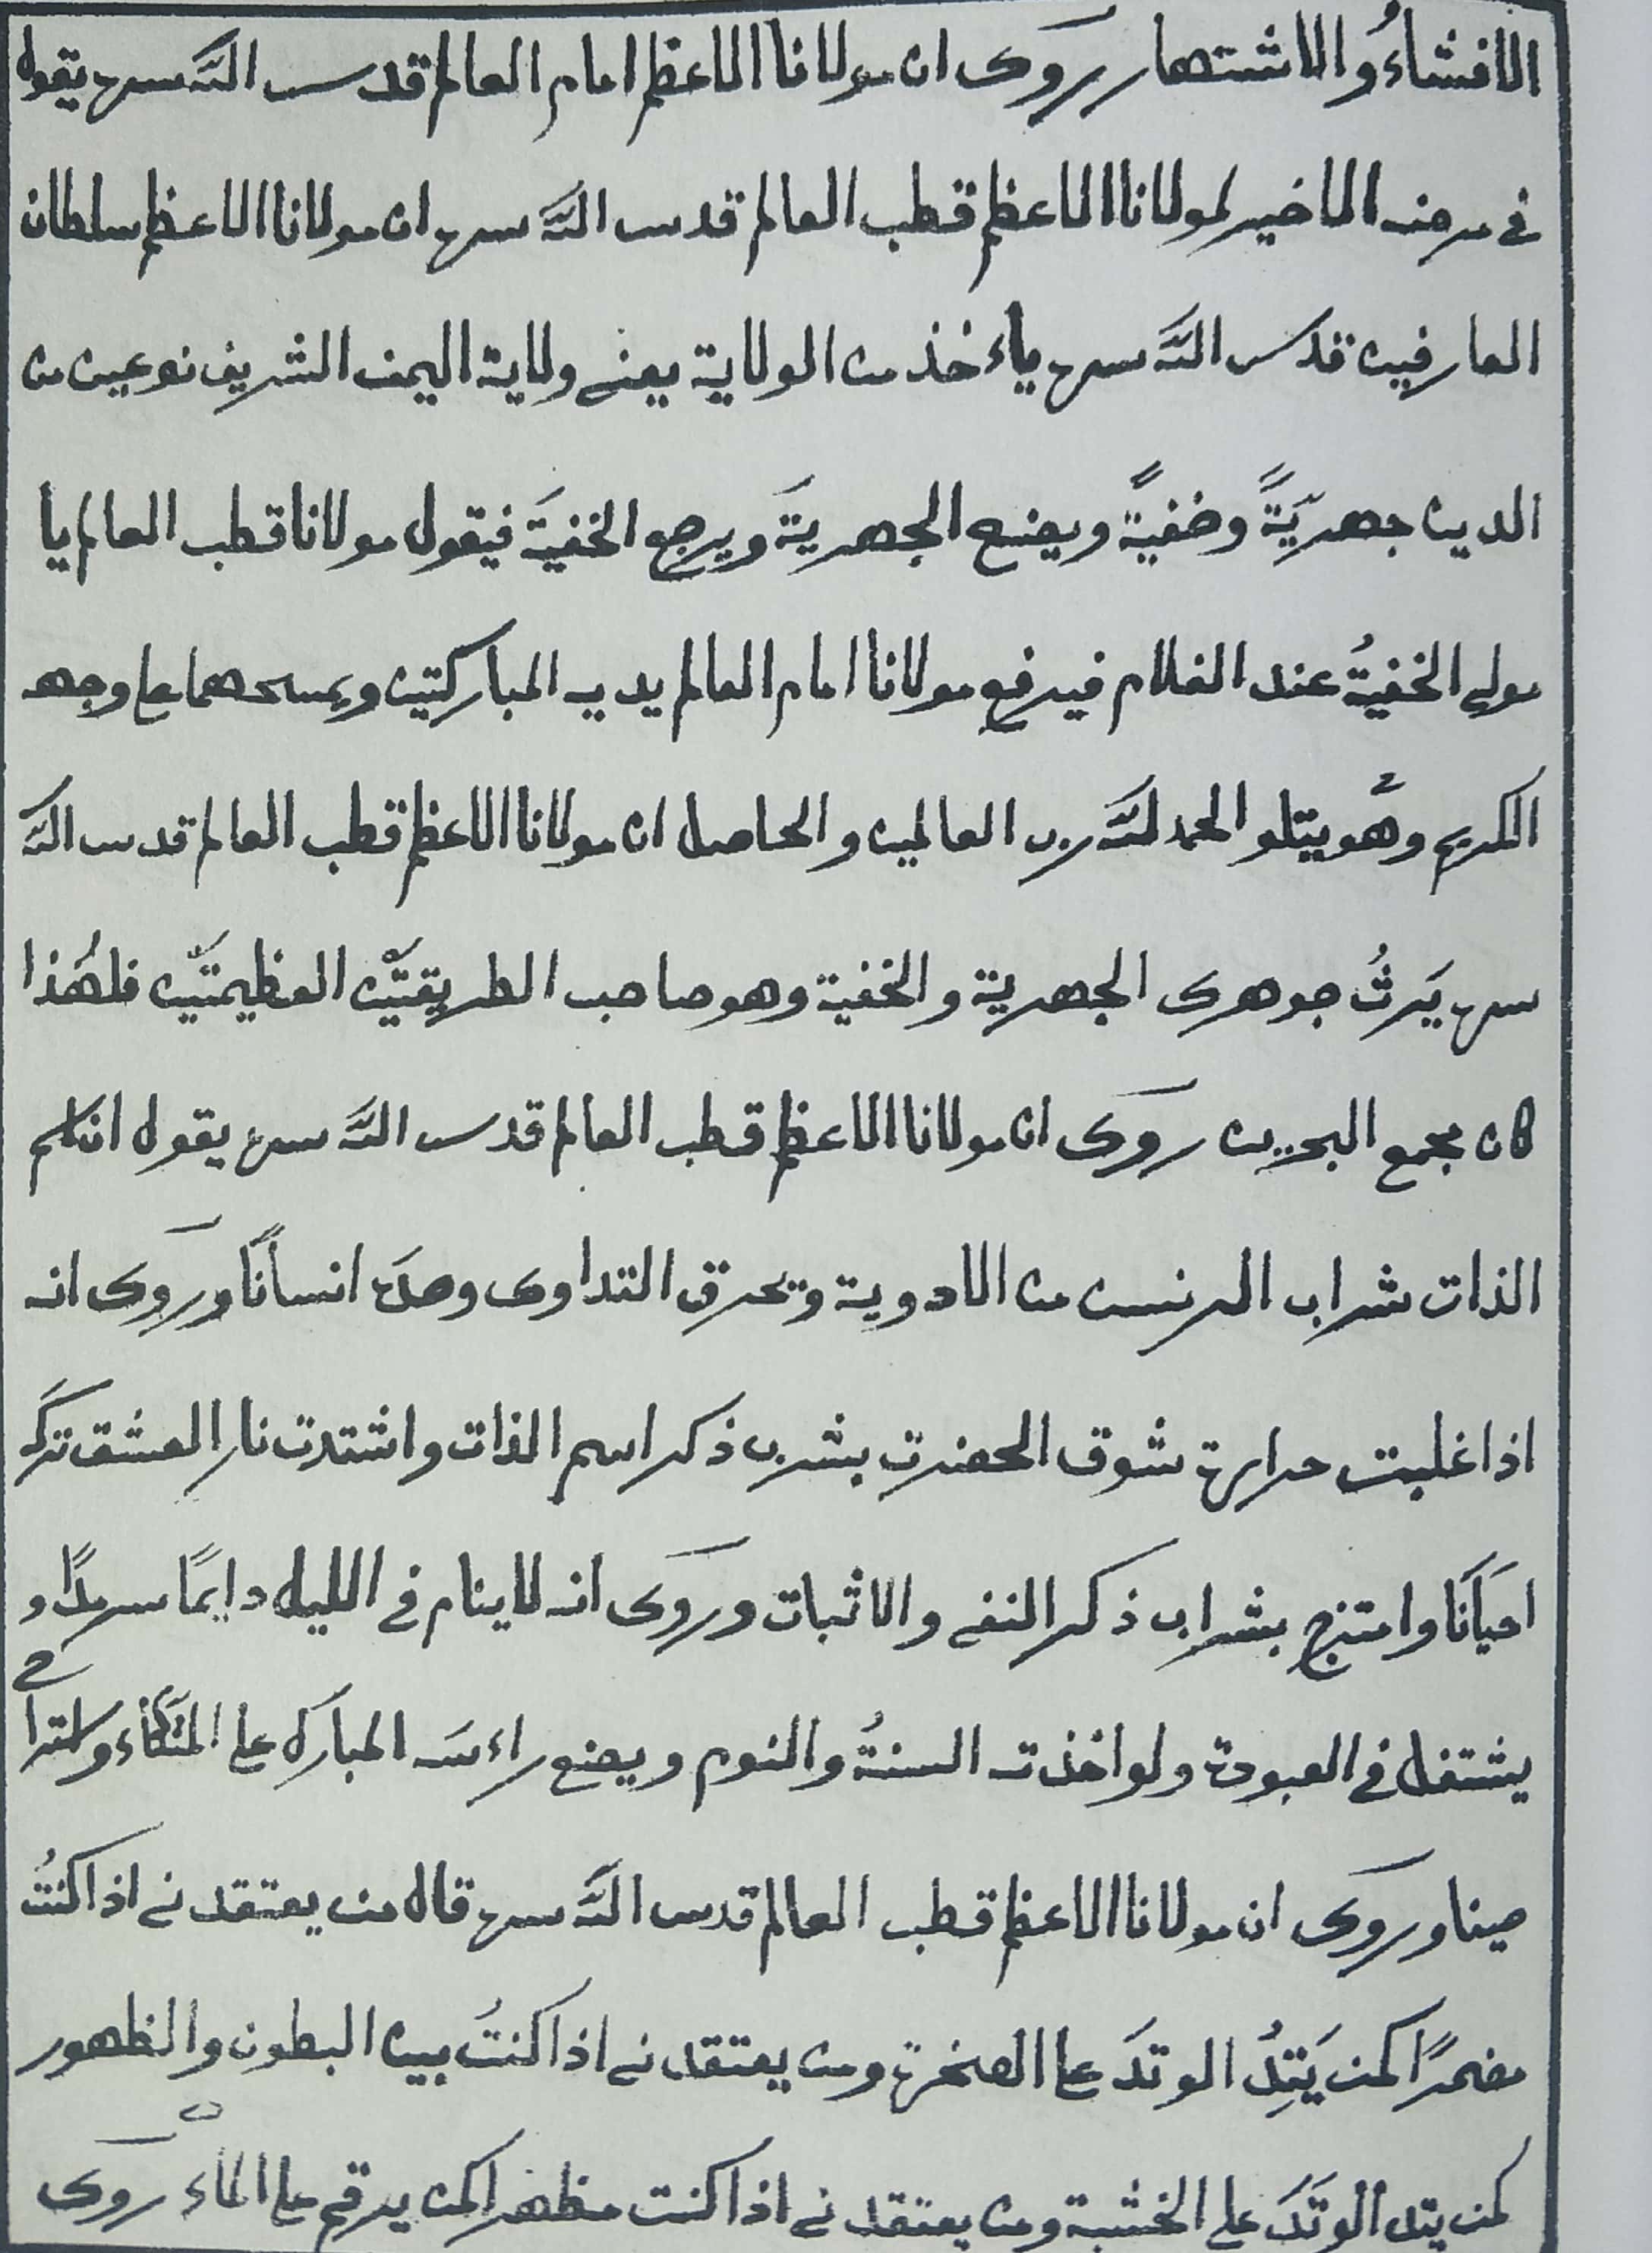 الافشاءُ والاشتهار روى ان مولانا الاعظم امام العالم قدس اللّه سره يقول
في مرضه الاخير لمولانا الاعظم قطب العالم قدس اللّه سره ان مولانا الاعظم سلطان
العارفين قدس اللّه سره ياءخذ من الولاية يعنے ولاية اليمن الشريف نوعين من
الدين جهريّةً وخفيةً ويضع الجهريةَ ويرجع الخفيةَ فيقول مولانا قطب العالم يا
مولے الخفيةُ عند الغلام فيرفع مولانا امام العالم يديه المباركتين ويمسحهما علے وجهه
الكريم وهو يتلو الحمد للّه رب العالمين والحاصل ان مولانا الاعظم قطب العالم قدس اللّه
سره يَرثُ جوهرى الجهرية والخفية وهو صاحب الطريقتَين العظيمتَين فلهٰذا
كان مجمع البحرين روى ان مولانا الاعظم قطب العالم قدس اللّه سره يقول ان اسم
الذات شراب من الادوية وتحرق التداوى وحدَه انساناً وروى انه
اذا غلبت حرارة شوق الحضرت بشرب ذكر اسم الذات واشتدت نار العشق تركَه
احيَانَا وامتزج بشراب ذكر النفے والاثبات وروى انه لا ينام في الليل دايمًا سرمدًا و
يشتغل في العبودة ولو اخذته السنةُ والنوم ويضع راءسَه المبارك علے المتكاء واستراح
حينا وروى ان مولانا الاعظم قطب العالم قدس اللّه سره قال من يعتقدنے اذا كنتُ
مضمرًا كمن يَتِدُ الوتدَ علے الصخرة ومن يعتقدنے اذا كنتُ بين البطون والظهور
كمن يتد الوَتَدَ علے الخشبة ومن يعتقدنے اذا كنت مظهرا كمن يرقم علے الماء روى